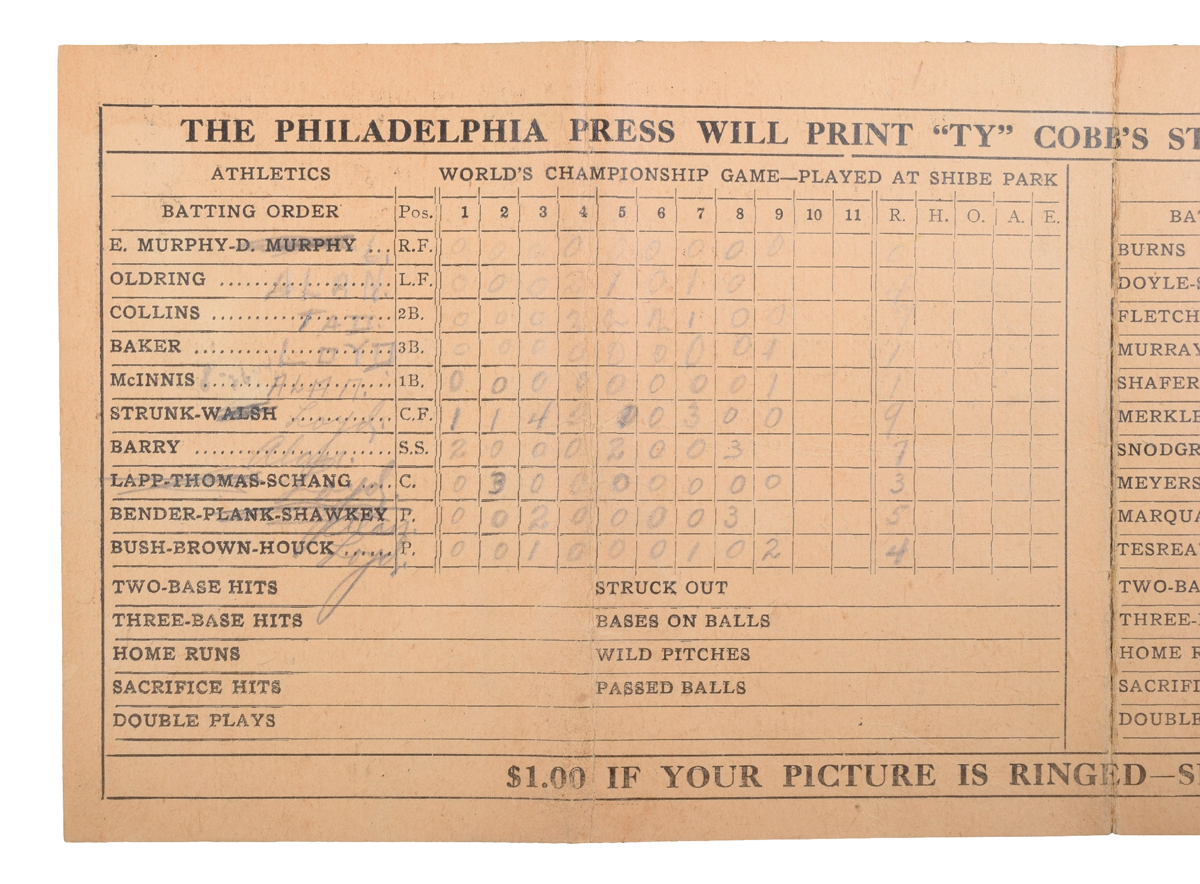 THE PHILADELPHIA PRESS WILL PRINT “TY” COBB’S ST
ATHLETICS WORLD’S CHAMPIONSHIP GAME—PLAYED AT SHIBE PARK
BATTING ORDER Pos. 1 2 3 4 5 6 7 8 9 10 11 R. H. O. A. E. BAT
E. MURPHY-D. MURPHY ... R.F. 0 0 0 0 0 0 0 0 0 BURNS
OLDRING ALAN. L.F. 0 0 0 1 0 1 0 DOYLE-S
COLLINS 2B. 0 0 0 1 0 FLETCH
BAKER LOYD 3B. 0 0 0 0 0 0 0 0 1 1 MURRAY
McINNIS ALAN. 1B. 0 0 0 0 0 0 0 0 1 1 SHAFER
STRUNK-WALSH Loyd. C.F. 1 1 4 0 0 3 0 0 9 MERKLE
BARRY Alan. S.S. 2 0 0 0 2 0 0 3 7 SNODGR
LAPP-THOMAS-SCHANG C. 0 3 0 0 0 0 0 0 0 3 MEYERS
BENDER-PLANK-SHAWKEY P. 0 0 2 0 0 0 0 3 5 MARQUA
BUSH-BROWN-HOUCK Loyd. P. 0 0 1 0 0 0 1 0 2 4 TESREA
TWO-BASE HITS STRUCK OUT TWO-BA
THREE-BASE HITS BASES ON BALLS THREE-
HOME RUNS WILD PITCHES HOME R
SACRIFICE HITS PASSED BALLS SACRIFI
DOUBLE PLAYS DOUBLE
$1.00 IF YOUR PICTURE IS RINGED—S